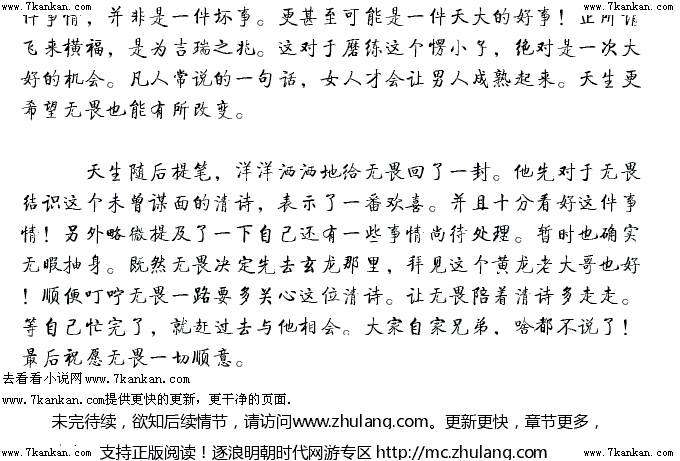 www.7kankan.com www.7kankan.com
件事情，并非是一件坏事。更甚至可能是一件天大的好事！正所谓
飞来横福，是为吉瑞之兆。这对于磨练这个愣小子，绝对是一次大
好的机会。凡人常说的一句话，女人才会让男人成熟起来。天生更
希望无畏也能有所改变。
天生随后提笔，洋洋洒洒地给无畏回了一封。他先对于无畏
结识这个未曾谋面的清诗，表示了一番欢喜。并且十分看好这件事
情！另外略微提及了一下自己还有一些事情尚待处理。暂时也确实
无暇抽身。既然无畏决定先去玄龙那里，拜见这个黄龙老大哥也好
！顺便叮咛无畏一路要多关心这位清诗。让无畏陪着清诗多走走。
等自己忙完了，就赶过去与他相会。大家自家兄弟，啥都不说了！
最后祝愿无畏一切顺意。
去看看小说网www.7kankan.com
www.7kankan.com提供更快的更新，更干净的页面.
未完待续，欲知后续情节，请访问www.zhulang.com。更新更快，章节更多，
支持正版阅读！逐浪明朝时代网游专区 http://mc.zhulang.com
www.7kankan.com www.7kankan.com